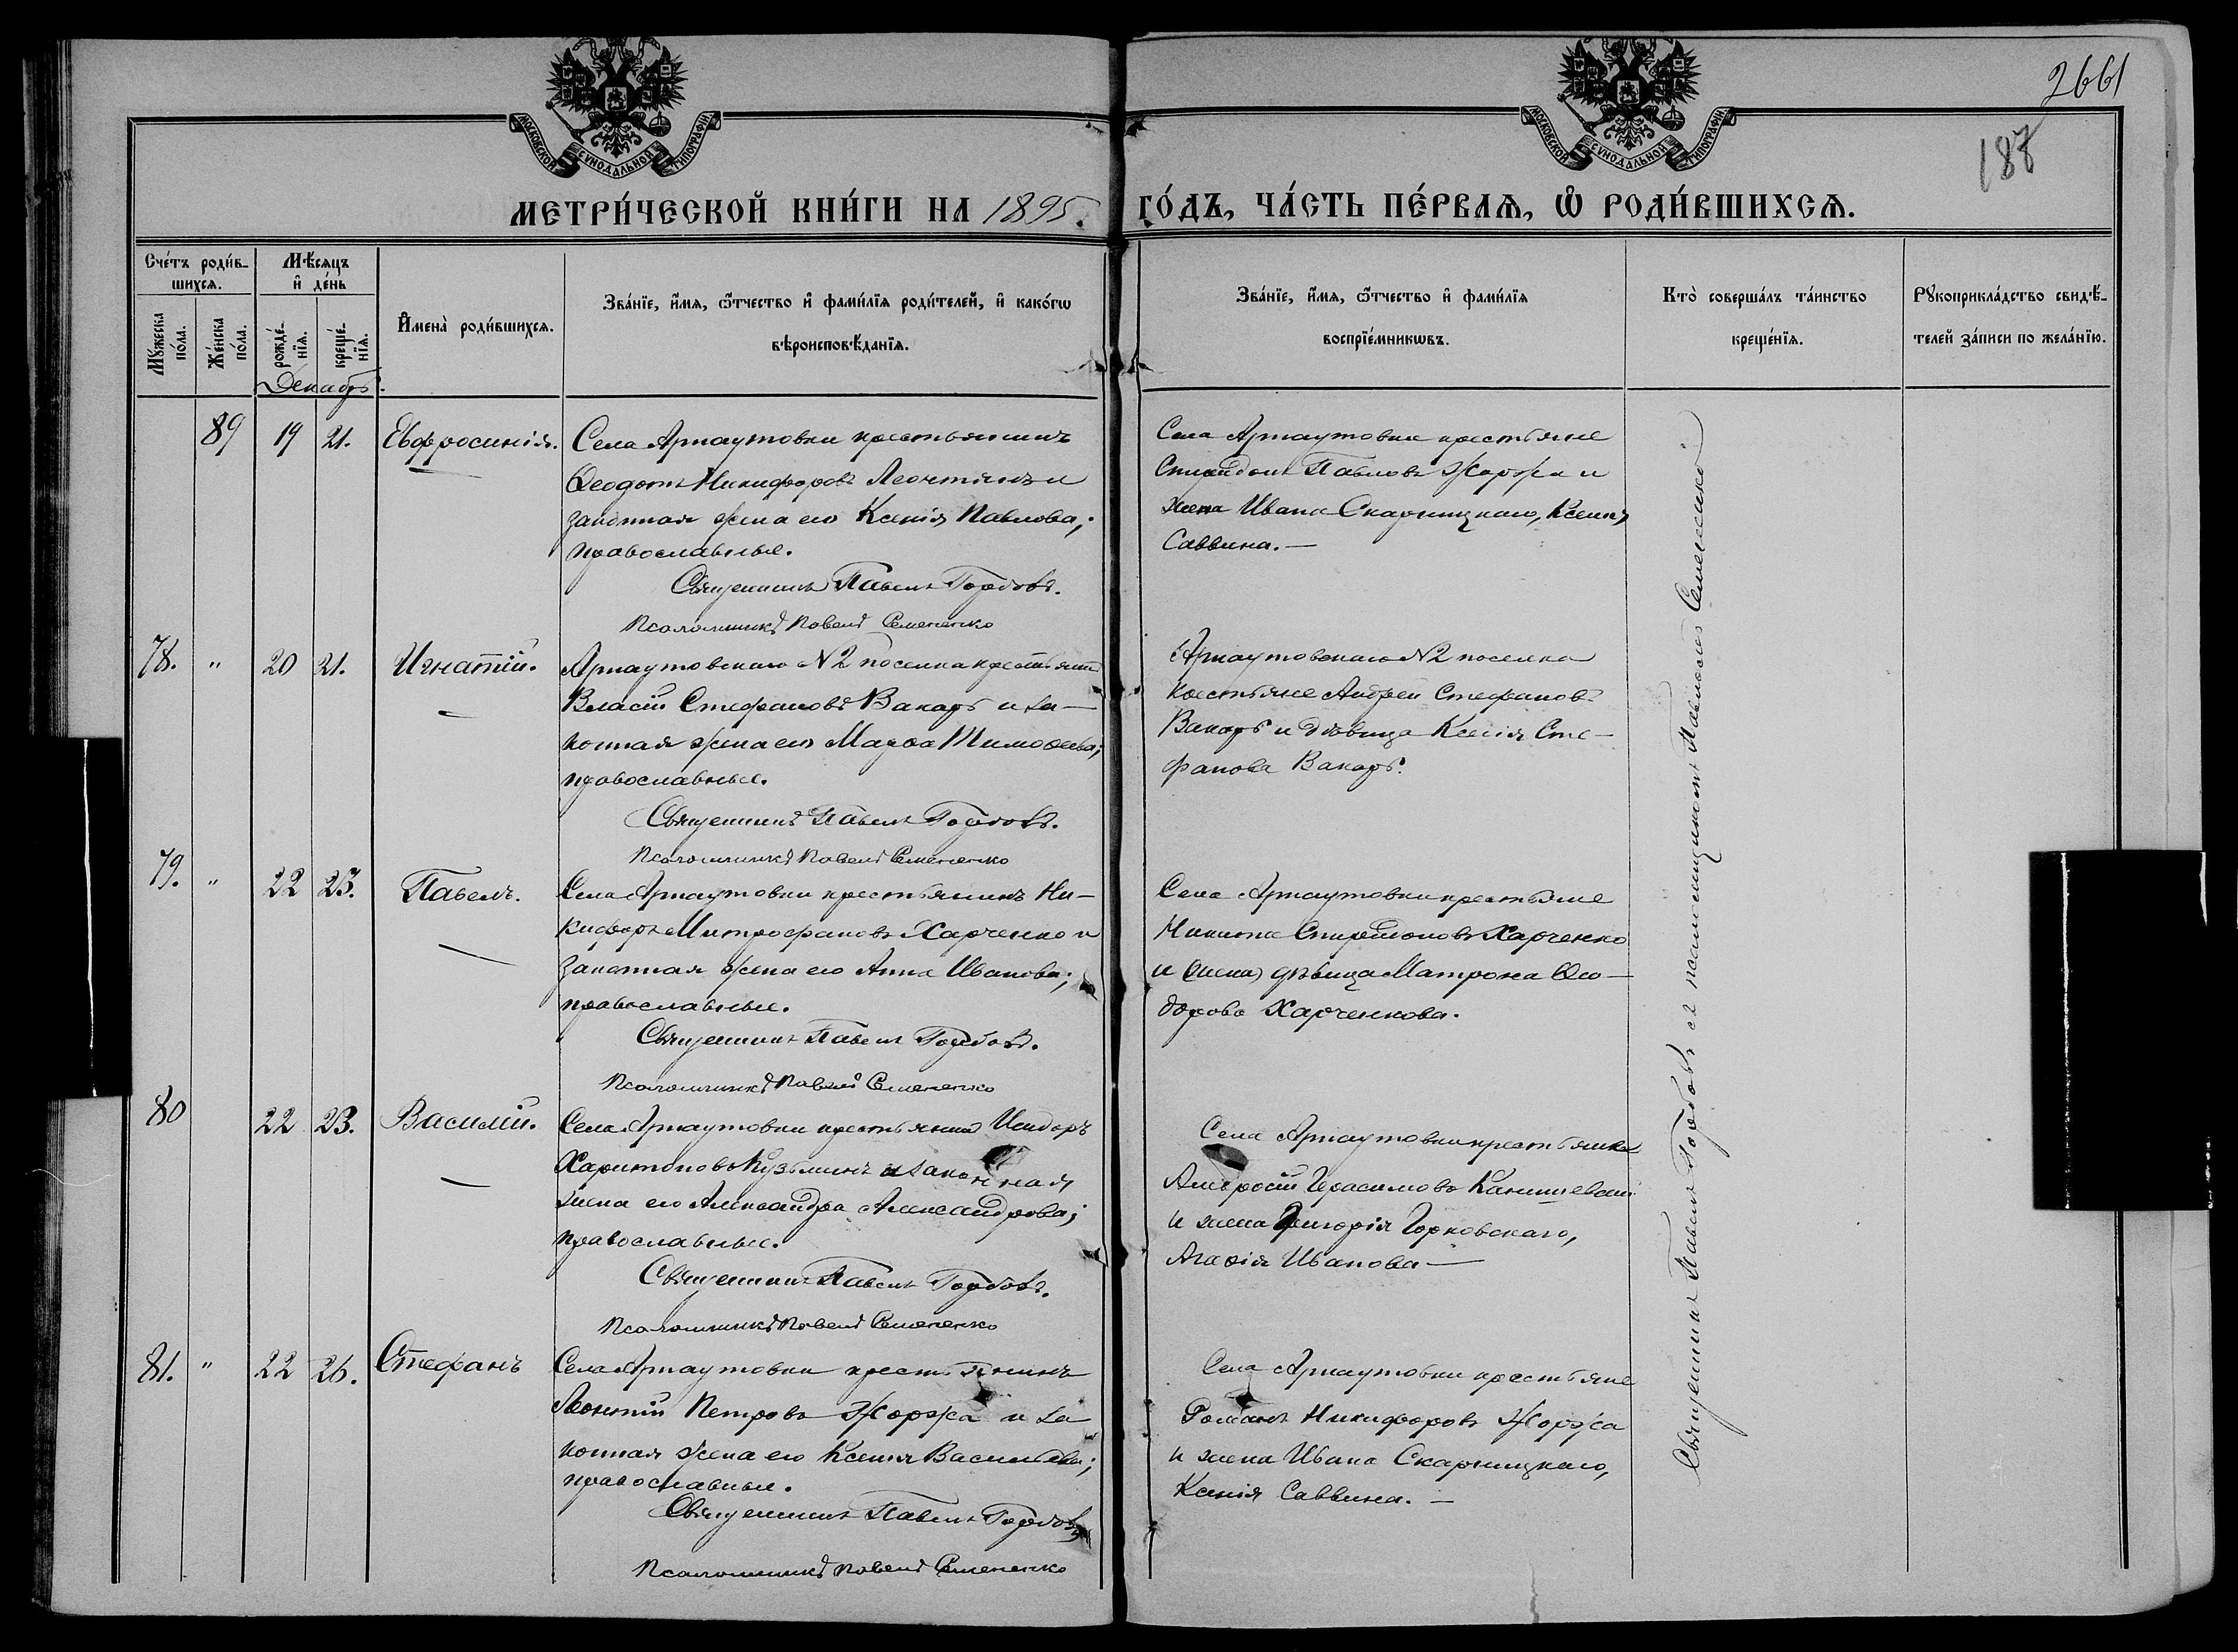 2661
187
МОСКОВСКОЙ СУНОДАЛЬНОЙ ТИПОГРАФІИ
МОСКОВСКОЙ СУНОДАЛЬНОЙ ТИПОГРАФІИ
МЕТРИ́ЧЕСКОЙ КНИ́ГИ НА 1895. ГО́ДЪ, ЧА́СТЬ ПЕ́РВАѦ, Ѽ РОДИ́ВШИХСѦ.
Сче́тъ роди́в-
шихсѧ.
Мѣ́сѧцъ
и҆ де́нь
Мꙋ́жеска по́ла.
Же́нска по́ла.
рожде́-
нїѧ.
креще́-
нїѧ.
И҆мена̀ роди́вшихсѧ.
Зва́нїе, и҆́мѧ, ѻ҆́тчество и҆ фами́лїѧ роди́телей, и҆ како́гѡ
вѣроисповѣ́данїѧ.
Зва́нїе, и҆́мѧ, ѻ҆́тчество и҆ фами́лїѧ
воспрїе́мникѡвъ.
Кто̀ соверша́лъ та́инство
креще́нїѧ.
Рꙋкоприкла́дство свидѣ́-
телей за́писи по жела́нїю.
Декабрь.
89 19 21. Евфросинія.
Села Арнаутовки крестьянинъ
Ѳеодотъ Никифоровъ Леонтянъ и
законная жена его Ксенія Павлова;
православные.
Священникъ Павелъ Горбовъ.
Псаломщикъ Павелъ Семененко
Села Арнаутовки крестьяне
Спиридонъ Павловъ Жоржа и
жена Ивана Скарницкаго, Ксенія
Саввина.—
78. " 20 21. Игнатій.
Арнаутовскаго N2 поселка крестьянинъ
Власій Стефановъ Вакарь и за-
конная жена его Марѳа Тимоѳеева;
православные.
Священникъ Павелъ Горбовъ.
Псаломщикъ Павелъ Семененко
Арнаутовскаго N2 поселка
крестьяне Андрей Стефановъ
Вакарь и дѣвица Ксенія Сте-
фанова Вакарь.
79. " 22 23. Павелъ.
Села Арнаутовки крестьянинъ Ни-
кифоръ Митрофановъ Харченко и
законная жена его Анна Иванова;
православные.
Священникъ Павелъ Горбовъ.
Псаломщикъ Павелъ Семененко
Села Арнаутовки крестьяне
Никита Спиридоновъ Харченко
и (жена) дѣвица Матрона Ѳео-
дорова Харченкова.
80 22 23. Василій.
Села Арнаутовки крестьянинъ Исидоръ
Харитоновъ Кузьминъ и законная
жена его Александра Александрова;
православные.
Священникъ Павелъ Горбовъ.
Псаломщикъ Павелъ Семененко
Села Арнаутовки крестьяне
Амвросій Герасимовъ
и жена Григорія Горковскаго,
Агаѳія Иванова—
81. " 22 26. Стефанъ
Села Арнаутовки крестьянинъ
Леонтій Петровъ Жоржа и за
конная жена его Ксенія Васильева;
православные.
Священникъ Павелъ Горбовъ
Псаломщикъ Павелъ Семененко
Села Арнаутовки крестьяне
Романъ Никифоровъ Жоржа
и жена Ивана Скарницкаго,
Ксенія Саввина.—
Священникъ Павелъ Горбовъ съ псаломщикомъ Павломъ Семененко